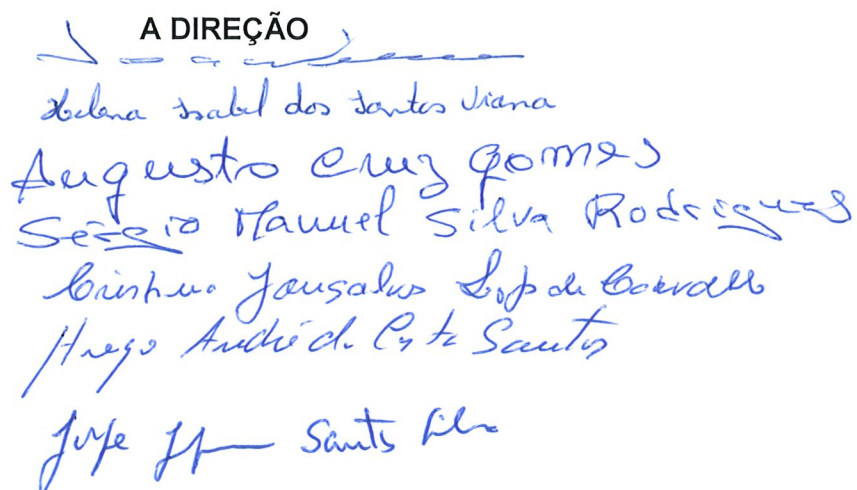 A DIREÇÃO
Helena Isabel dos Santos Viana
Augusto Cruz Gomes
Sérgio Manuel Silva Rodrigues
Gonçalves de
Hugo André da Costa Santos
Jorge Santos Silva